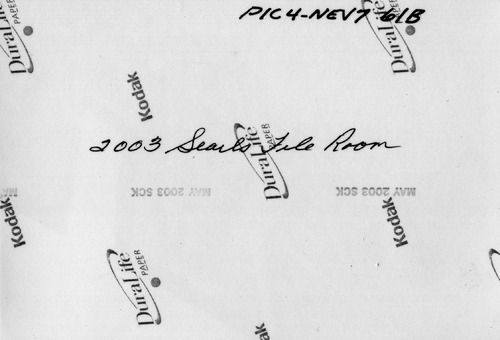 PIC4-NEV7 61B
DuraLife
PAPER
DuraLife
PAPER
Kodak
2003 Searls File Room
DuraLife
PAPER
MAY 2003 SCK
MAY 2003 SCK
Kodak
Kodak
DuraLife
PAPER
Kodak